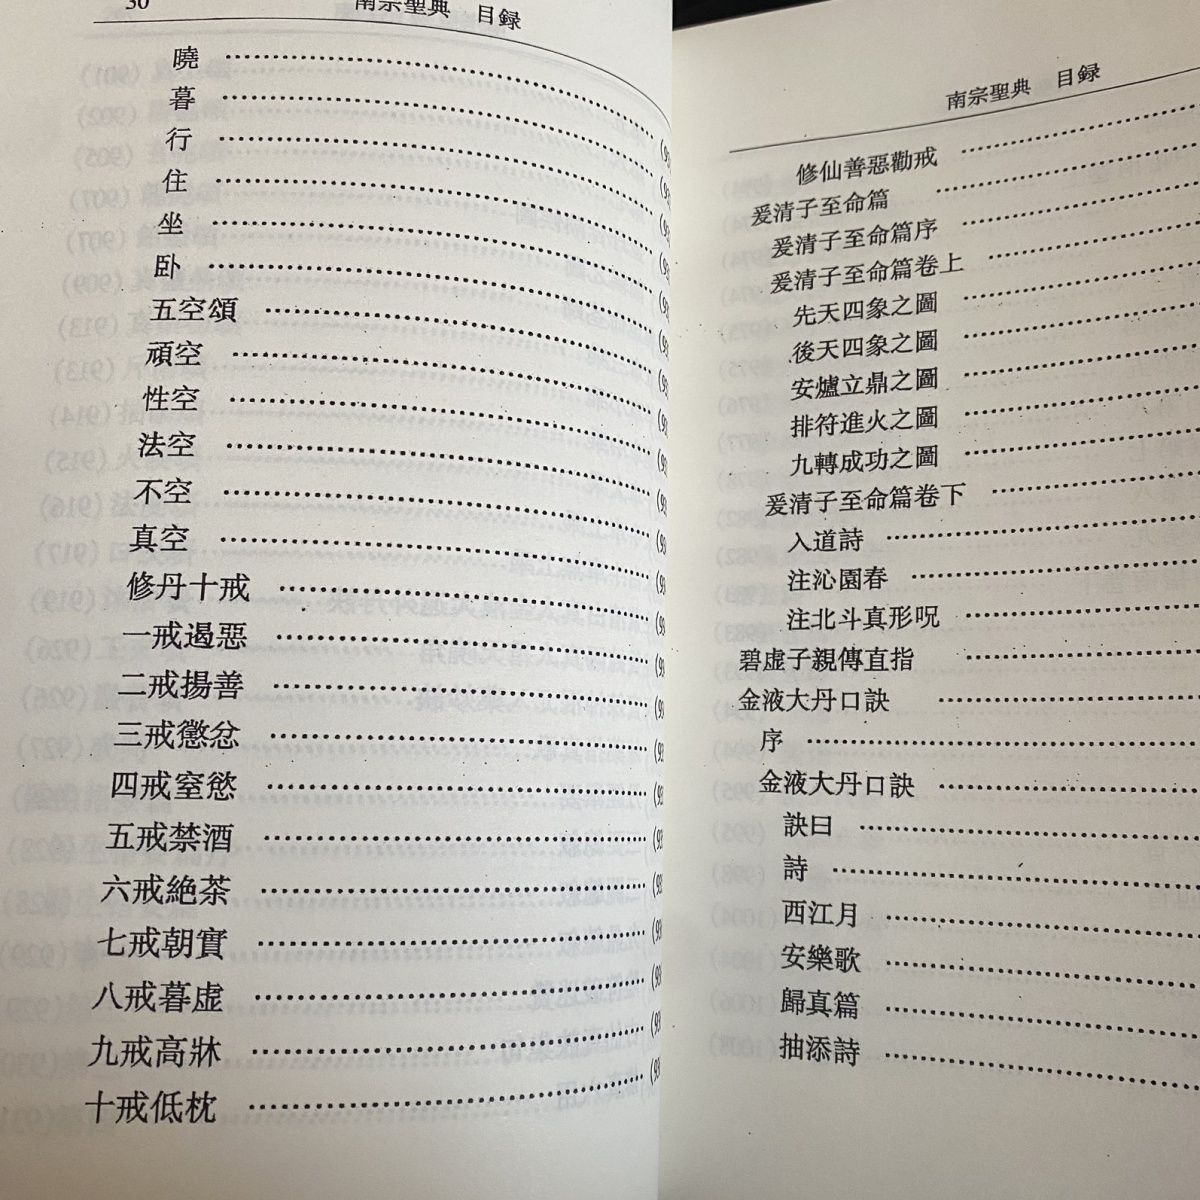 30 南宗聖典 目録
曉
暮
行
住
坐
卧
五空頌
頑空
性空
法空
不空
真空
修丹十戒
一戒遏惡
二戒揚善
三戒懲忿
四戒窒慾
五戒禁酒
六戒絶茶
七戒朝實
八戒暮虚
九戒高牀
十戒低枕
南宗聖典 目録
修仙善惡勸戒
爰清子至命篇
爰清子至命篇序
爰清子至命篇卷上
先天四象之圖
後天四象之圖
安爐立鼎之圖
排符進火之圖
九轉成功之圖
爰清子至命篇卷下
入道詩
注沁園春
注北斗真形呪
碧虚子親傳直指
金液大丹口訣
序
金液大丹口訣
訣曰
詩
西江月
安樂歌
歸真篇
抽添詩